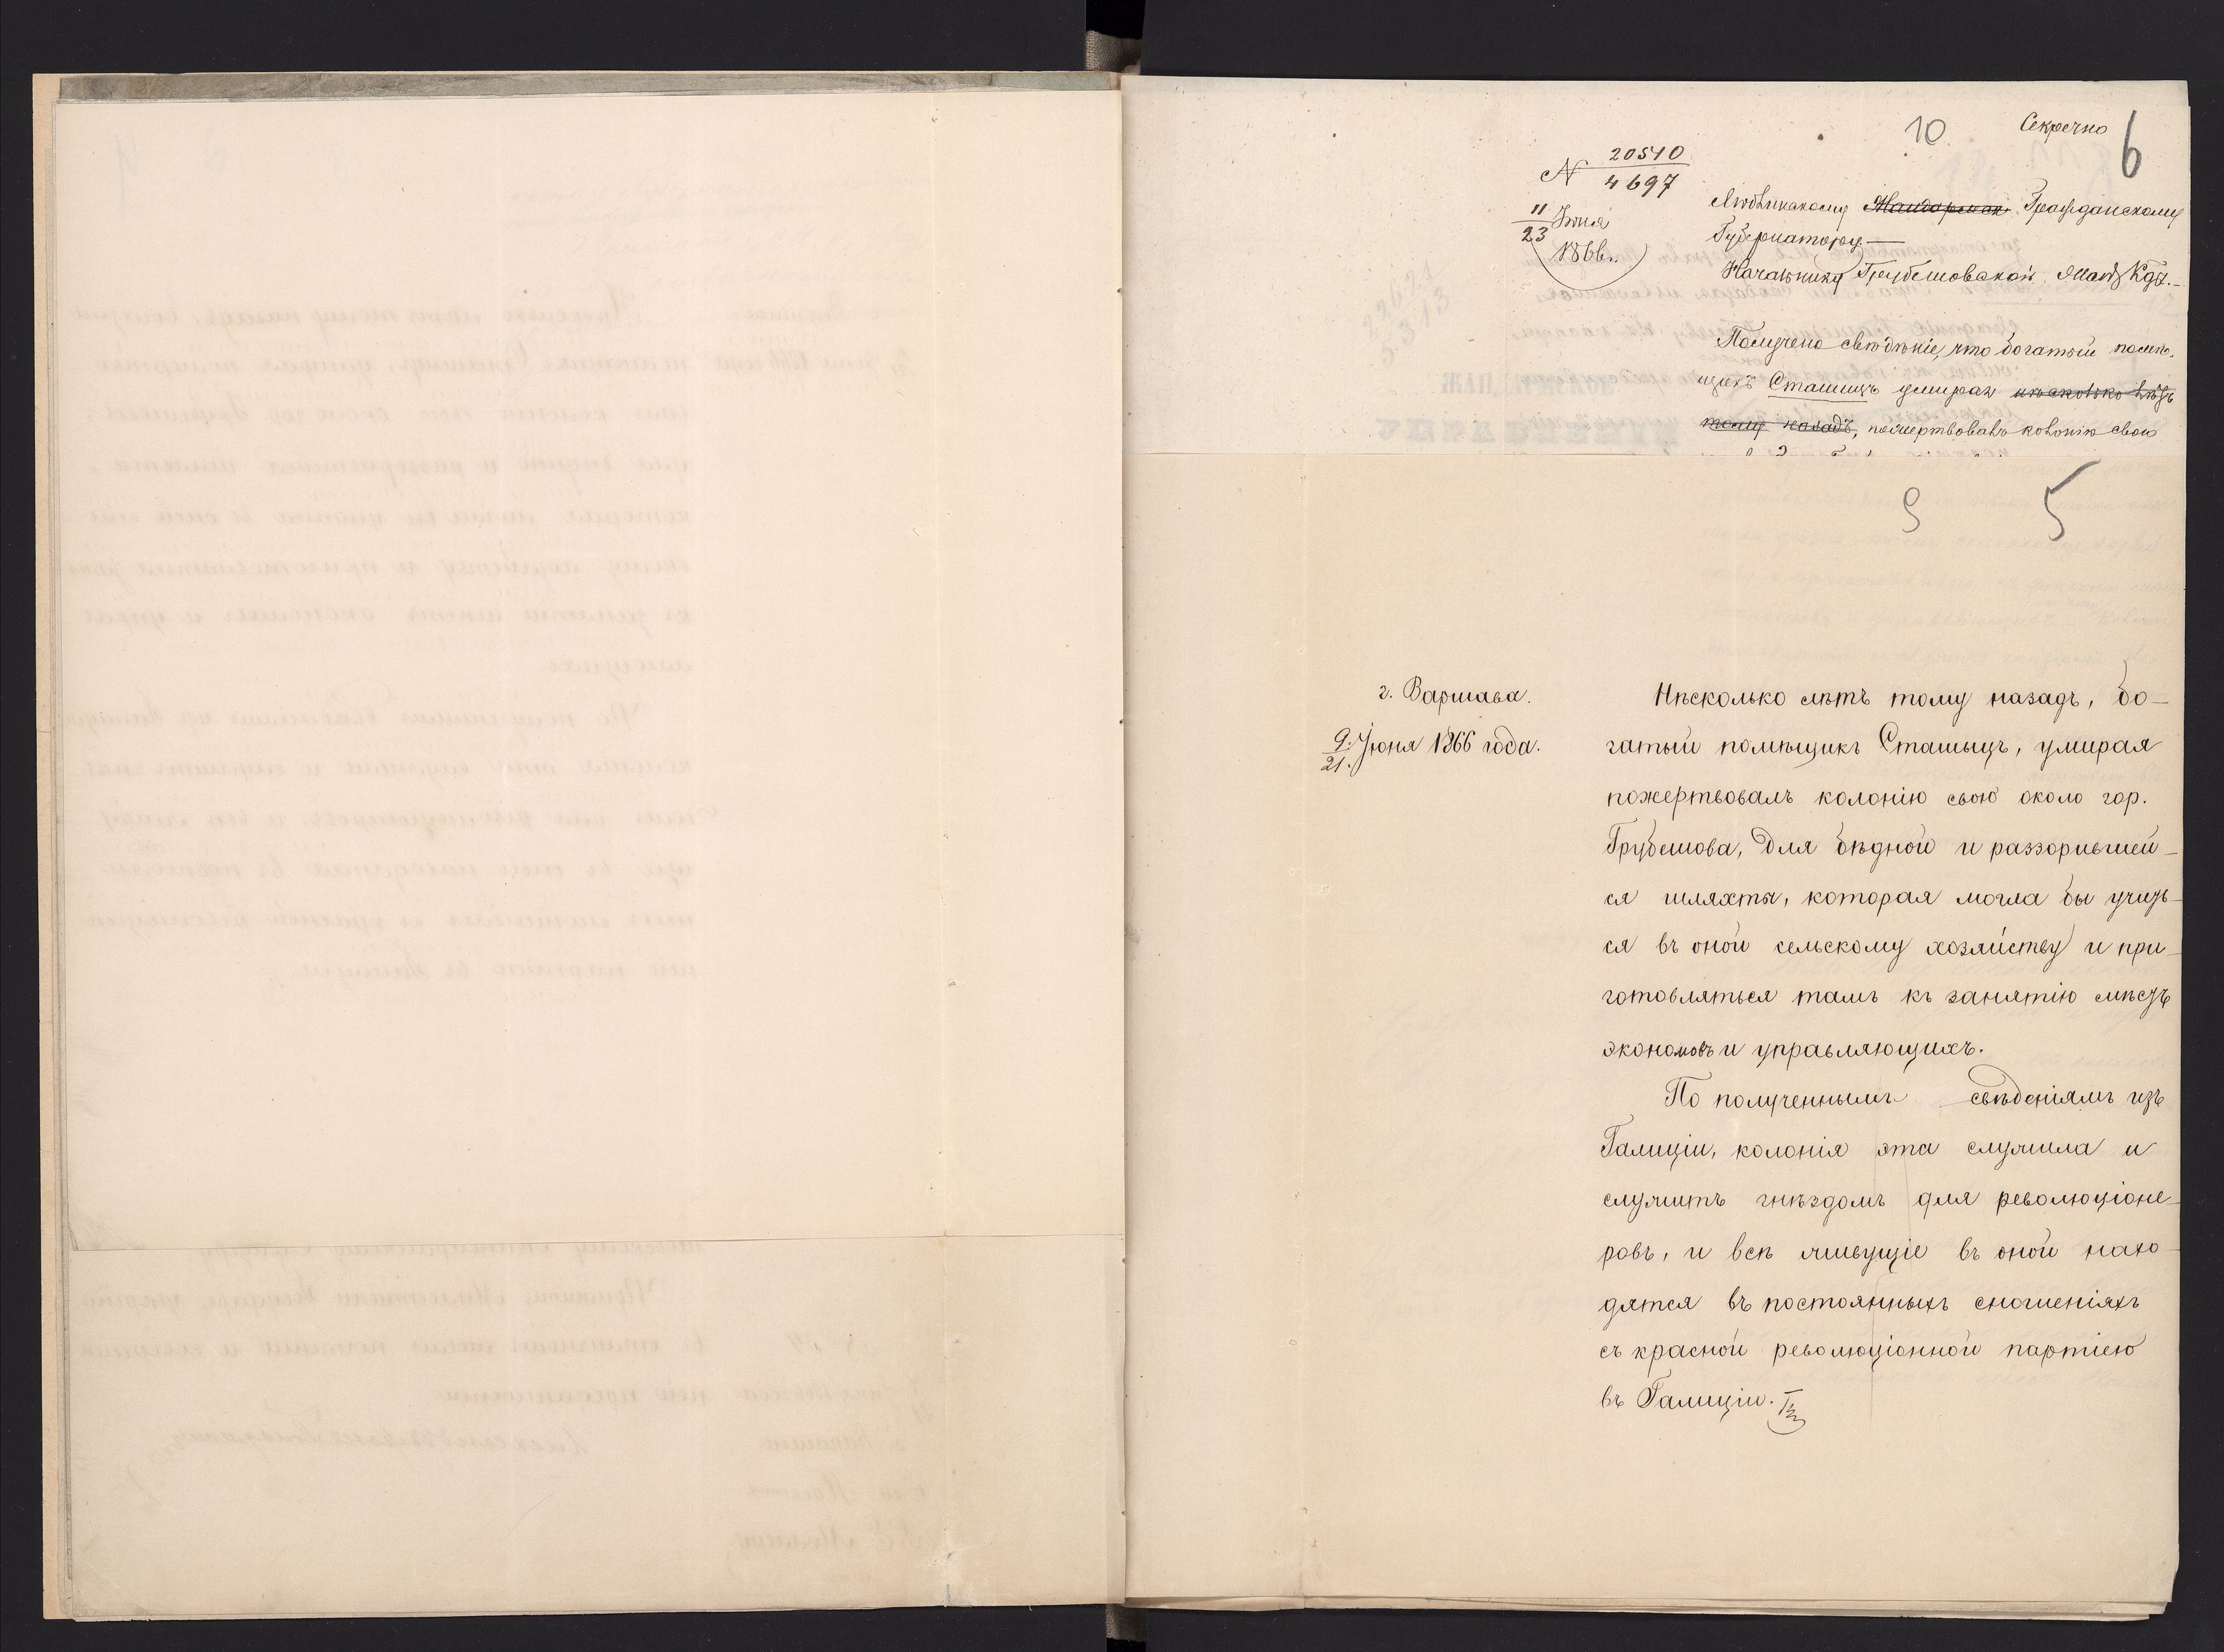 10
Секретно
6
N 20540
4697
11
23 Іюня
1866 г.
Люблинскому Жандармск. Гражданскому
Губернатору
Начальнику Грубешовской Жанд. Кдѣ.
Получено свѣдѣніе, что богатый помѣ-
щикъ Сташицъ умирая нѣсколько лѣтъ
тому назадъ, пожертвовалъ колонію свою
9
5
г. Варшава.
9/21 Іюня 1866 года.
Нѣсколько лѣтъ тому назадъ, бо-
гатый помѣщикъ Сташыцъ, умирая
пожертвовалъ колонію свою около гор.
Грубешова, для бѣдной и раззорившей-
ся шляхты, которая могла бы учить-
ся въ оной сельскому хозяйству и при-
готовляться тамъ къ занятію мѣстъ
экономовъ и управляющихъ.
По полученнымъ свѣденіямъ изъ
Галиціи, колонія эта служила и
служитъ гнѣздомъ для революціоне-
ровъ, и всѣ живущіе въ оной нахо-
дятся въ постоянныхъ сношеніяхъ
съ красной революціонной партіею
въ Галиціи.